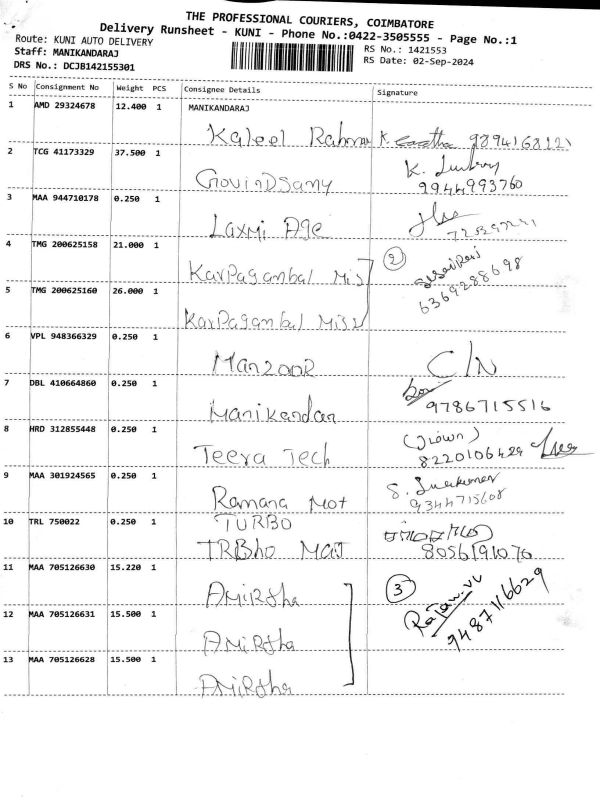 THE PROFESSIONAL COURIERS, COIMBATORE
Delivery Runsheet - KUNI - Phone No.:0422-3505555 - Page No.:1
Route: KUNI AUTO DELIVERY
Staff: MANIKANDARAJ
DRS No.: DCJB142155301
RS No.: 1421553
RS Date: 02-Sep-2024
S No Consignment No Weight PCS Consignee Details Signature
1 AMD 29324678 12.400 1 MANIKANDARAJ
Kaleel Rahman K. 9894168121
2 TCG 41173329 37.500 1
GovinDSamy K. 9944993760
3 MAA 944710178 0.250 1
Laxmi Age
4 TMG 200625158 21.000 1
KarPagambal Mis 2
6369288698
5 TMG 200625160 26.000 1
KarPagambal Miss
6 VPL 948366329 0.250 1
Manzoor C/N
7 DBL 410664860 0.250 1
Manikandan 9786715516
8 HRD 312855448 0.250 1
Teera Tech 8220106429
9 MAA 301924565 0.250 1
Ramana Mot S. 9344715608
10 TRL 750022 0.250 1
TURBO
TRBho Mat 8056191076
11 MAA 705126630 15.220 1
AMiRtha 3
9487116629
12 MAA 705126631 15.500 1
AMiRtha
13 MAA 705126628 15.500 1
AMiRtha